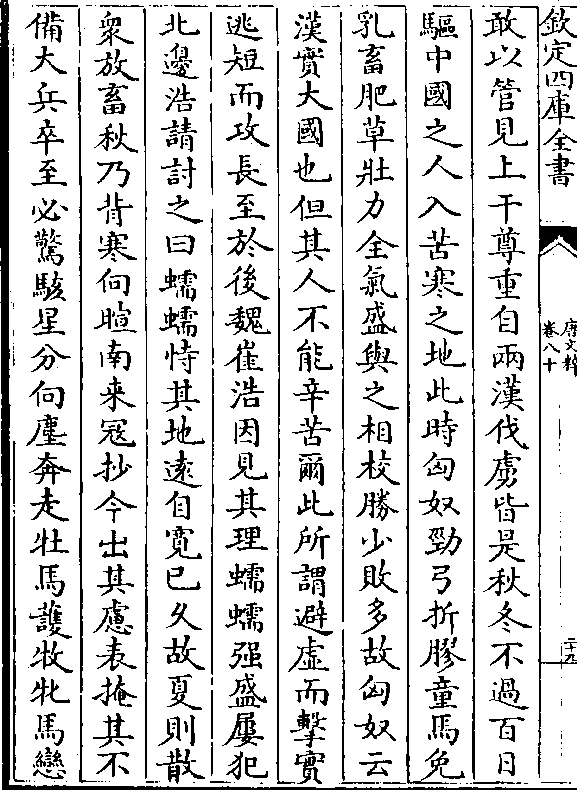 欽定四庫全書
唐文粹
卷八十
二十九
敢以管見上干尊重自兩漢伐虜皆是秋冬不過百日
驅中國之人入苦寒之地此時匈奴勁弓折膠童馬免
乳畜肥草壯力全氣盛與之相校勝少敗多故匈奴云
漢實大國也但其人不能辛苦爾此所謂避虛而擊實
逃短而攻長至於後魏崔浩因見其理蠕蠕强盛屢犯
北邊浩請討之曰蠕蠕恃其地遠自寛已久故夏則散
衆放畜秋乃背寒向暄南来冦抄今出其慮表掩其不
備大兵卒至必驚駭星分向塵奔走牡馬護牧牝馬戀